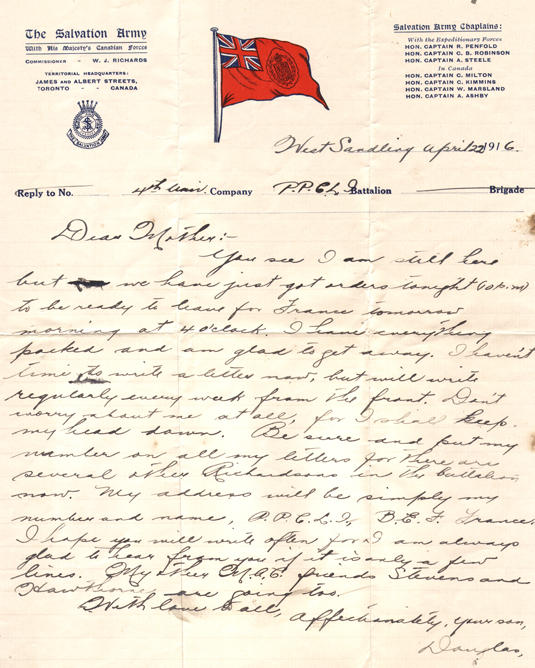 The Salvation Army
With His Majesty's Canadian Forces
Commissioner - W. J. Richards
Territorial Headquarters:
James and Albert Streets,
Toronto - - Canada
THE SALVATION ARMY
Salvation Army Chaplains:
With the Expeditionary Forces
Hon. Captain R. Penfold
Hon. Captain C. B. Robinson
Hon. Captain A. Steele
In Canada
Hon. Captain C. Milton
Hon. Captain C. Kimmins
Hon. Captain W. Marsland
Hon. Captain A. Ashby
West Sandling April 22 1916.
Reply to No. 4th Univ. Company P.P.C.L.I. Battalion Brigade
Dear Mother:-
You see I am still here
but we have just got orders tonight (10 p.m)
to be ready to leave for France tomorrow
morning at 4 o'clock. I have everything
packed and am glad to get away. I haven't
time to write a letter now, but will write
regularly every week from the front. Don't
worry about me at all, for I shall keep
my head down. Be sure and put my
number on all my letters for there are
several other Richardsons in the battalion
now. My address will be simply my
number and name, P.P.C.L.I., B.E.F. France.
I hope you will write often for I am always
glad to hear from you if it is only a few
lines. My other M.A.C. friends Stevens and
Hawthorne are going too.
With love to all, Affectionately, your son,
Douglas,